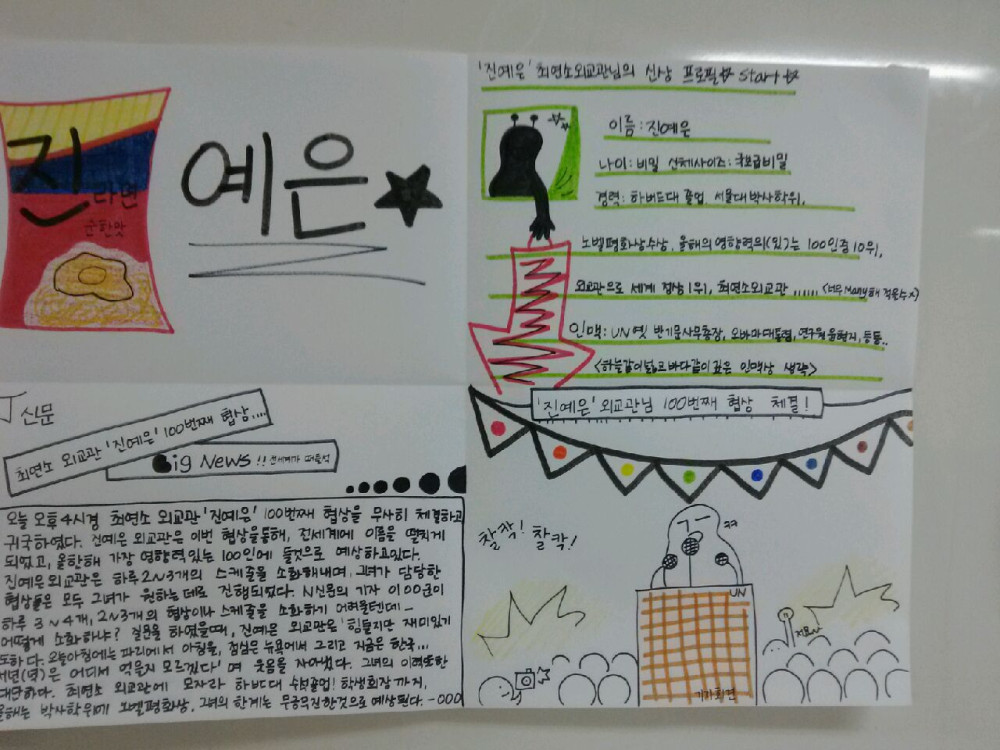 진
라면
순한맛
예은
'진예은' 최연소외교관님의 신상 프로필 start
이름 : 진예은
나이 : 비밀 신체사이즈 : 국보급비밀
경력 : 하버드대 졸업. 서울대박사학위,
노벨평화상수상, 올해의영향력의(있)는 100인중 10위,
외교관으로 세계 정상1위, 최연소외교관 ...... <너무 Many해 적을수 x>
인맥 : UN 옛 반기문사무총장, 오바마대통령, 등등..
<하늘같이넓고바다같이 깊은 인맥상 생략>
J 신문
최연소 외교관 '진예은' 100번째 협상....
Big News !! 전세계가 떠들썩
오늘 오후4시경 최연소 외교관 '진예은' 100번째 협상을 무사히 체결하고
귀국하였다. 진예은 외교관은 이번 협상을통해, 전세계에 이름을 떨치게
되었고, 올한해 가장 영향력 있는 100인에 들것으로 예상하고있다.
진예은외교관은 하루 2~3개의 스케줄을 소화해내며, 그녀가 담당한
협상들은 모두 그녀가 원하는데로 진행되었다. N신문의 기자 이00군이
하루 3~4개, 2~3개의 협상이나 스케줄을 소화하기 어려울텐데-
어떻게 소화하냐? 질문을 하였을때, 진예은 외교관은 '힘들지만 재미있기
도하다. 오늘아침에는 파리에서 아침을, 점심은 뉴욕에서 그리고 지금은 한국...
저녁(녁)은 어디서 먹을지 모르겠다' 며 웃음을 자아냈다. 그녀의 이력또한
대단하다. 최연소 외교관에 모자라 하버드대 수석졸업! 학생회장 까지,
올해는 박사학위에 노벨평화상. 그녀의 한계는 무궁무진한것으로 예상된다. -000
'진예은' 외교관님 100번째 협상 체결!
찰칵! 찰칵!
ㅋㅋ
UN
기자회견